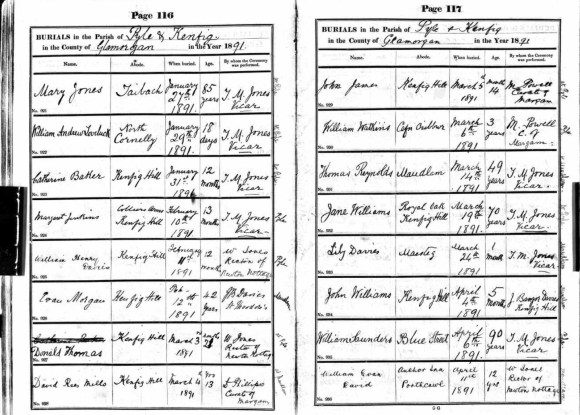 Page 116
BURIALS in the Parish of Pyle & Kenfig
in the County of Glamorgan in the Year 1891.
Name. Abode. When buried. Age. By whom the Ceremony was performed.
Mary Jones Taibach January 27th 1891. 85 years T. M. Jones Vicar.
No. 921
William Andrew North Cornelly January 29th 1891. 18 days T. M. Jones Vicar
No. 922
Catherine Baker Kenfig Hill January 31st 12 months T. M. Jones Vicar.
No. 923
Margaret Jenkins Colliers Arms Kenfig Hill February 10th 1891 13 months T. M. Jones Vicar
No. 924
William Henry Davies Kenfig Hill February 11th 1891 12 months W Jones Rector of Newton Nottage
No. 925
Evan Morgan Kenfig Hill Feb. 12th 1891 42 years Davies
No. 926
Donald Thomas Kenfig Hill March 3rd 1891 W. Jones Rector of Newton Nottage
No. 927
David Rees Kenfig Hill March 4 1891 yrs 13 Phillips Curate of Margam
No. 928
Page 117
BURIALS in the Parish of Pyle & Kenfig
in the County of Glamorgan in the Year 1891
Name. Abode. When buried. Age. By whom the Ceremony was performed.
John James Kenfig Hill March 1891 month 14 Powell Curate of Margam
No. 929
William Watkins Cefn March 6th 1891. 3 years M. Powell Margam
No. 930
Thomas Reynolds Maudlam March 14th 1891. 49 years T. M. Jones Vicar.
No. 931
Jane Williams Royal Oak Kenfig Hill March 19th 1891. 70 years T. M. Jones Vicar.
No. 932
Lily Davies Maesteg March 24th 1891. 1 month T. M. Jones Vicar.
No. 933
John Williams Kenfig Hill April 4th 1891. 5 month J. Davies Kenfig Hill
No. 934
William Saunders Blue Street April 6th 1891. 90 years T. M. Jones Vicar
No. 935
William Evan David Porthcawl April 11th 1891 12 yrs W Jones Rector of Newton Nottage
No. 936